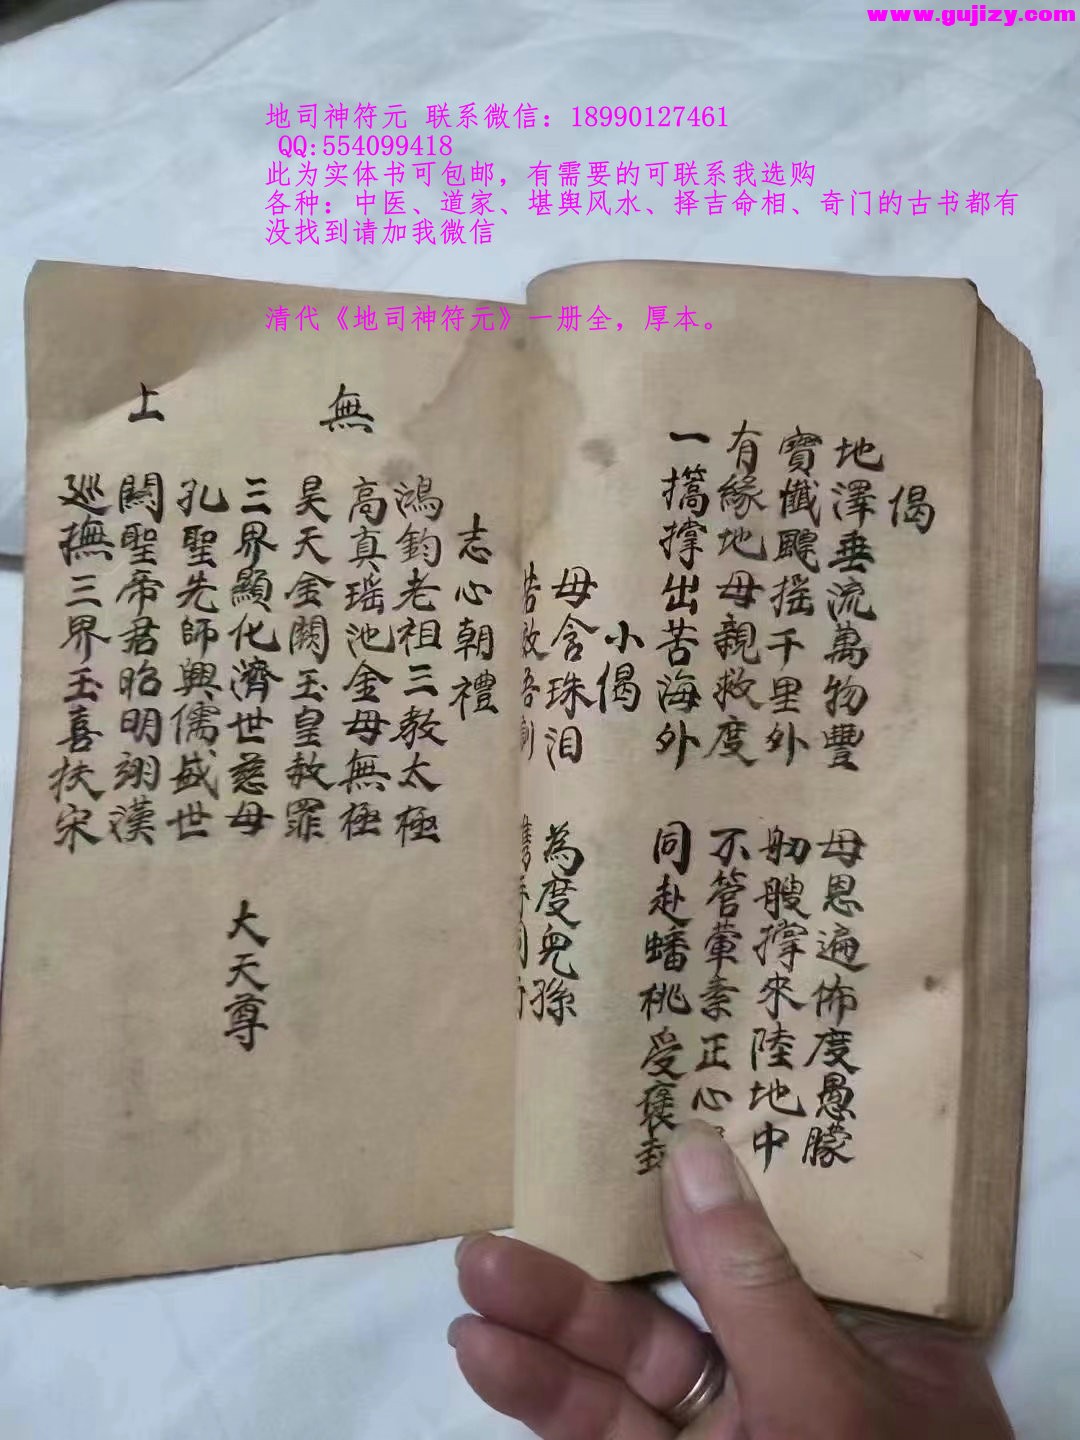 www.gujizy.com
地司神符元 联系微信：18990127461
QQ:554099418
此为实体书可包邮，有需要的可联系我选购
各种：中医、道家、堪舆风水、择吉命相、奇门的古书都有
没找到请加我微信
清代《地司神符元》一册全，厚本。
偈
地澤垂流萬物豐 母恩遍佈度愚朦
寶懺飃摇千里外 舠艘撑來陸地中
有緣地母親救度 不管葷素正心
一撐出苦海外 同赴蟠桃受褒封
小偈
母含珠泪 為度兒孫
志心朝禮
無
上
鴻鈞老祖三教太極
高真瑶池金母無極
昊天金闕玉皇赦罪
三界顯化濟世慈母
孔聖先師興儒盛世
關聖帝君昭明翊漢
巡撫三界王喜扶宋
大天尊